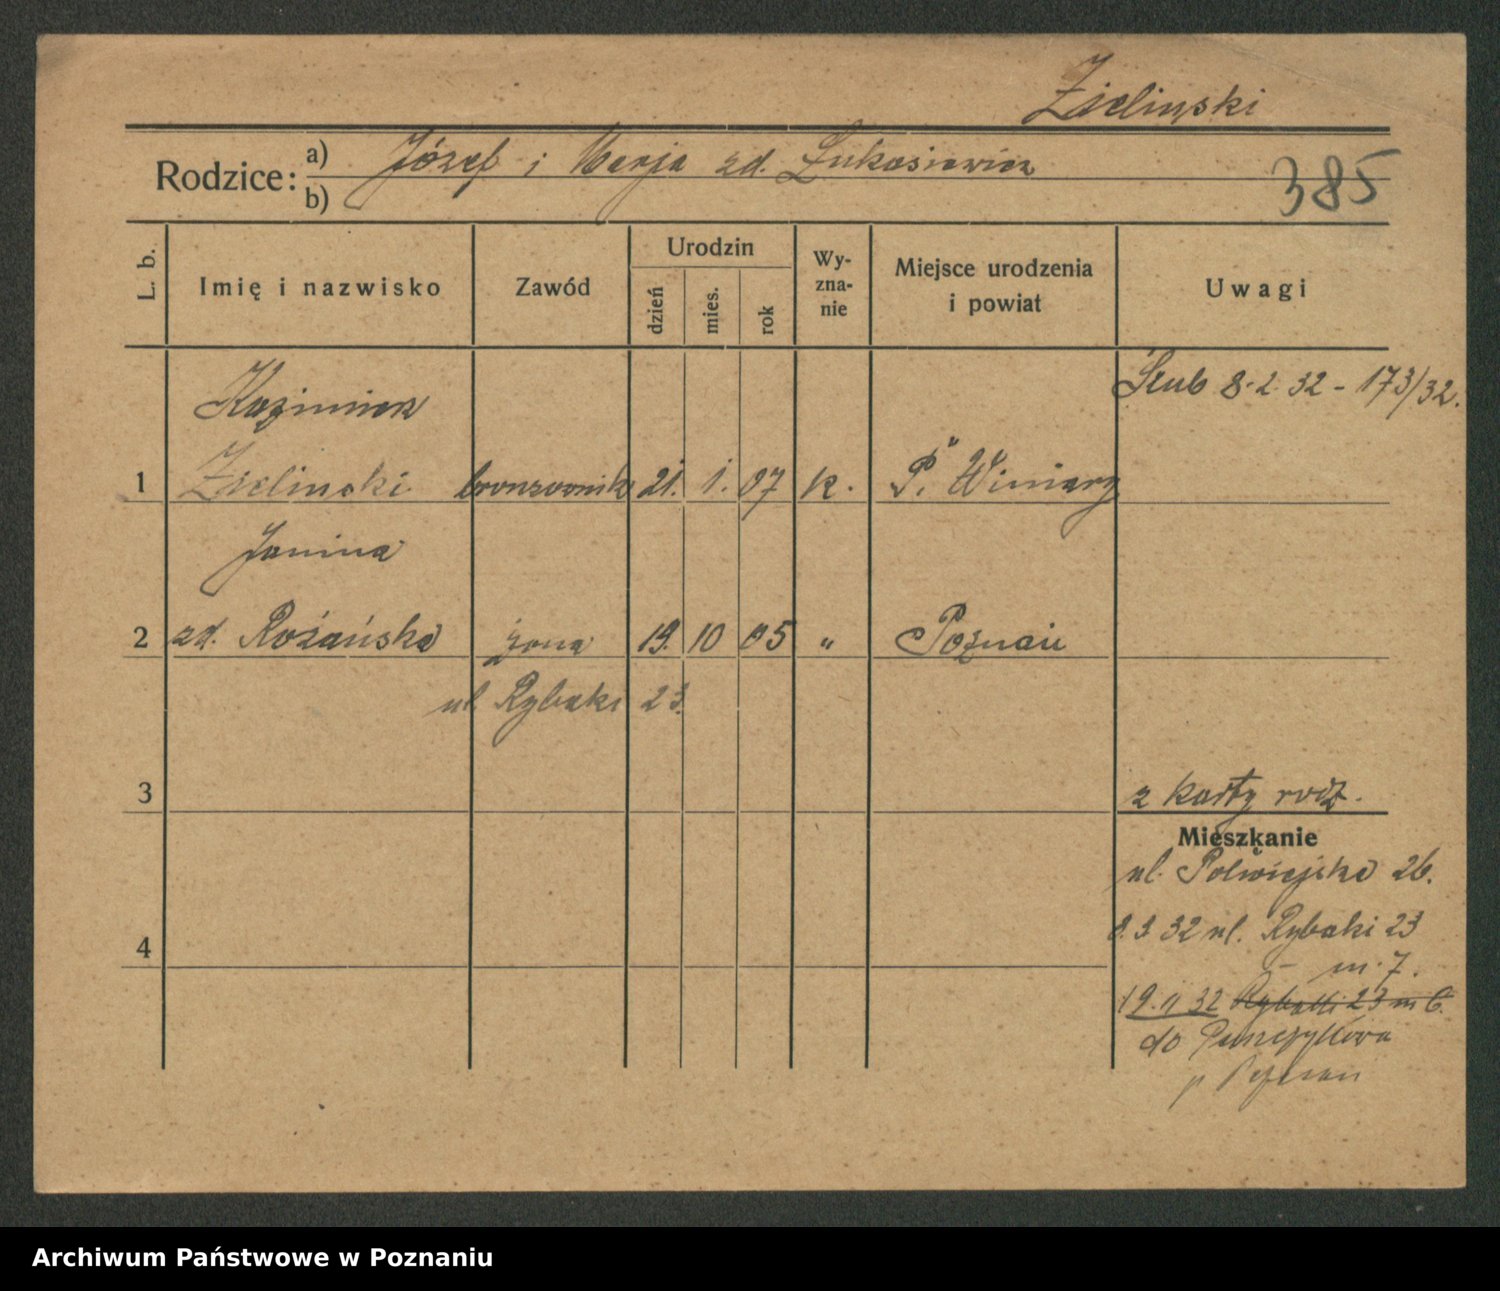 Zieliński
Rodzice:
a) Józef i Marja zd. Łukasiewicz
b)
385
L. b.
Imię i nazwisko
Zawód
Urodzin
dzień
mies.
rok
Wy-
zna-
nie
Miejsce urodzenia
i powiat
Uwagi
Kazimierz
Ślub 8.2.32 - 173/32.
1 Zieliński bronzownik 21. 1. 07 k. P. Winiary
Janina
2 zd. Rożańska żona 19. 10 05 " Poznań
ul Rybaki 23.
3
z karty rodz.
Mieszkanie
ul. Półwiejska 26.
8.3 32 ul. Rybaki 23
4
m. 7.
19.11 32 Rybaki 23 m 6.
do
p
Archiwum Państwowe w Poznaniu